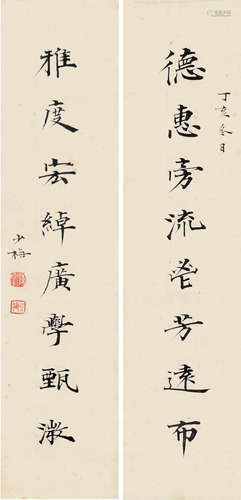 丁亥冬日
德惠旁流芬芳遠布
雅度宏綽廣學甄微
少梅